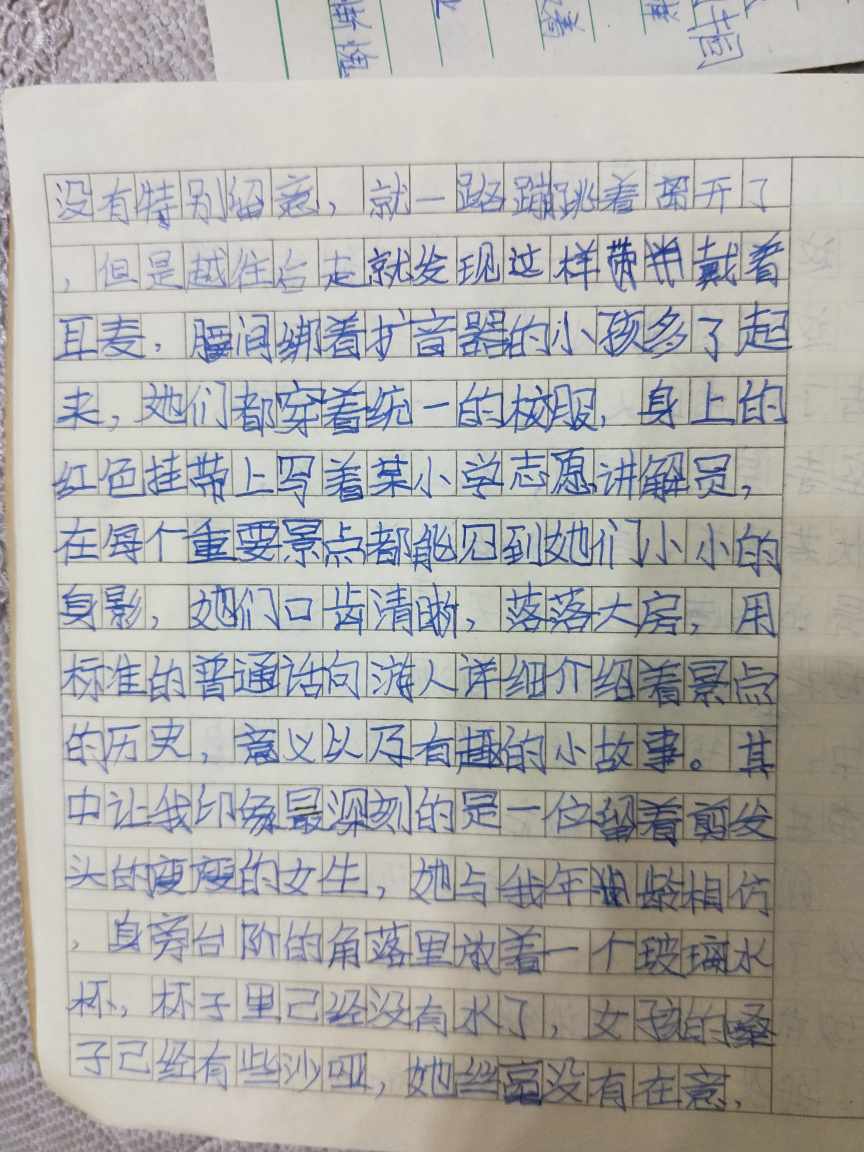 没有特别留意，就一路蹦跳着离开了
，但是越往后走就发现过样带戴着
耳麦，腰间绑着扩音器的小孩多了起
来，她们都穿着统一的校服，身上的
红色挂带上写着某小学志愿讲解员，
在每个重要景点都能见到她们小小的
身影，她们口齿清晰，落落大房，用
标准的普通话向游人详细介绍着景点
的历史，意义以及有趣的小故事。其
中让我印象最深刻的是一位留着剪发
头的瘦瘦的女生，她与我年龄相仿
，身旁台阶的角落里放着一个玻璃水
杯，杯子里已经没有水了，女孩的桑
子已经有些沙哑，她丝毫没有在意，